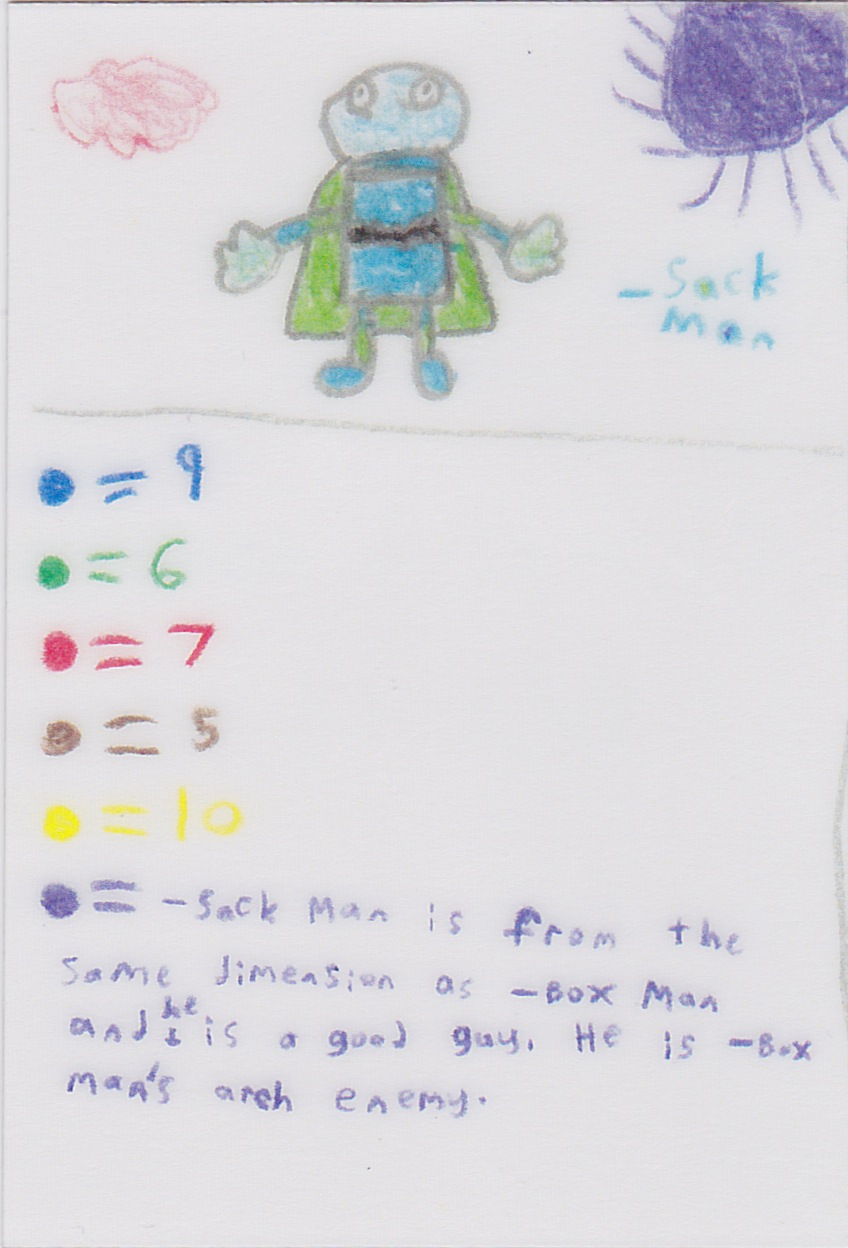 -Sack
Man
= 9
= 6
= 7
= 5
= 10
= -Sack Man is from the
same dimension as -Box Man
and he is a good guy. He is -Box
man's arch enemy.